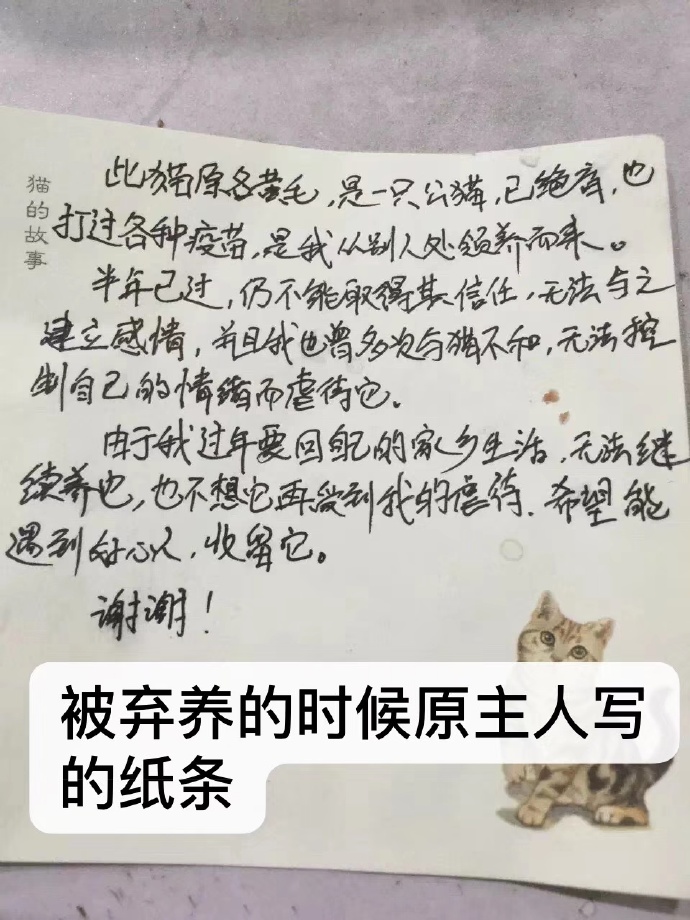 猫的故事
此猫原名黄毛,是一只公猫,已绝育,也
打过各种疫苗,是我从别人处领养而来。
半年已过,仍不能取得其信任,无法与之
建立感情,并且我也曾多次与猫不和,无法控
制自己的情绪而虐待它。
由于我过年要回自己的家乡生活,无法继
续养它,也不想它再受到我的虐待,希望能
遇到好心人,收留它。
谢谢!
被弃养的时候原主人写
的纸条